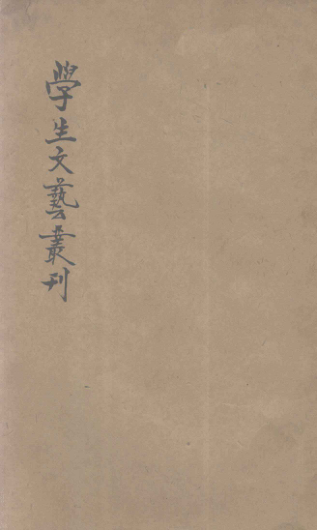 學生文藝叢刊